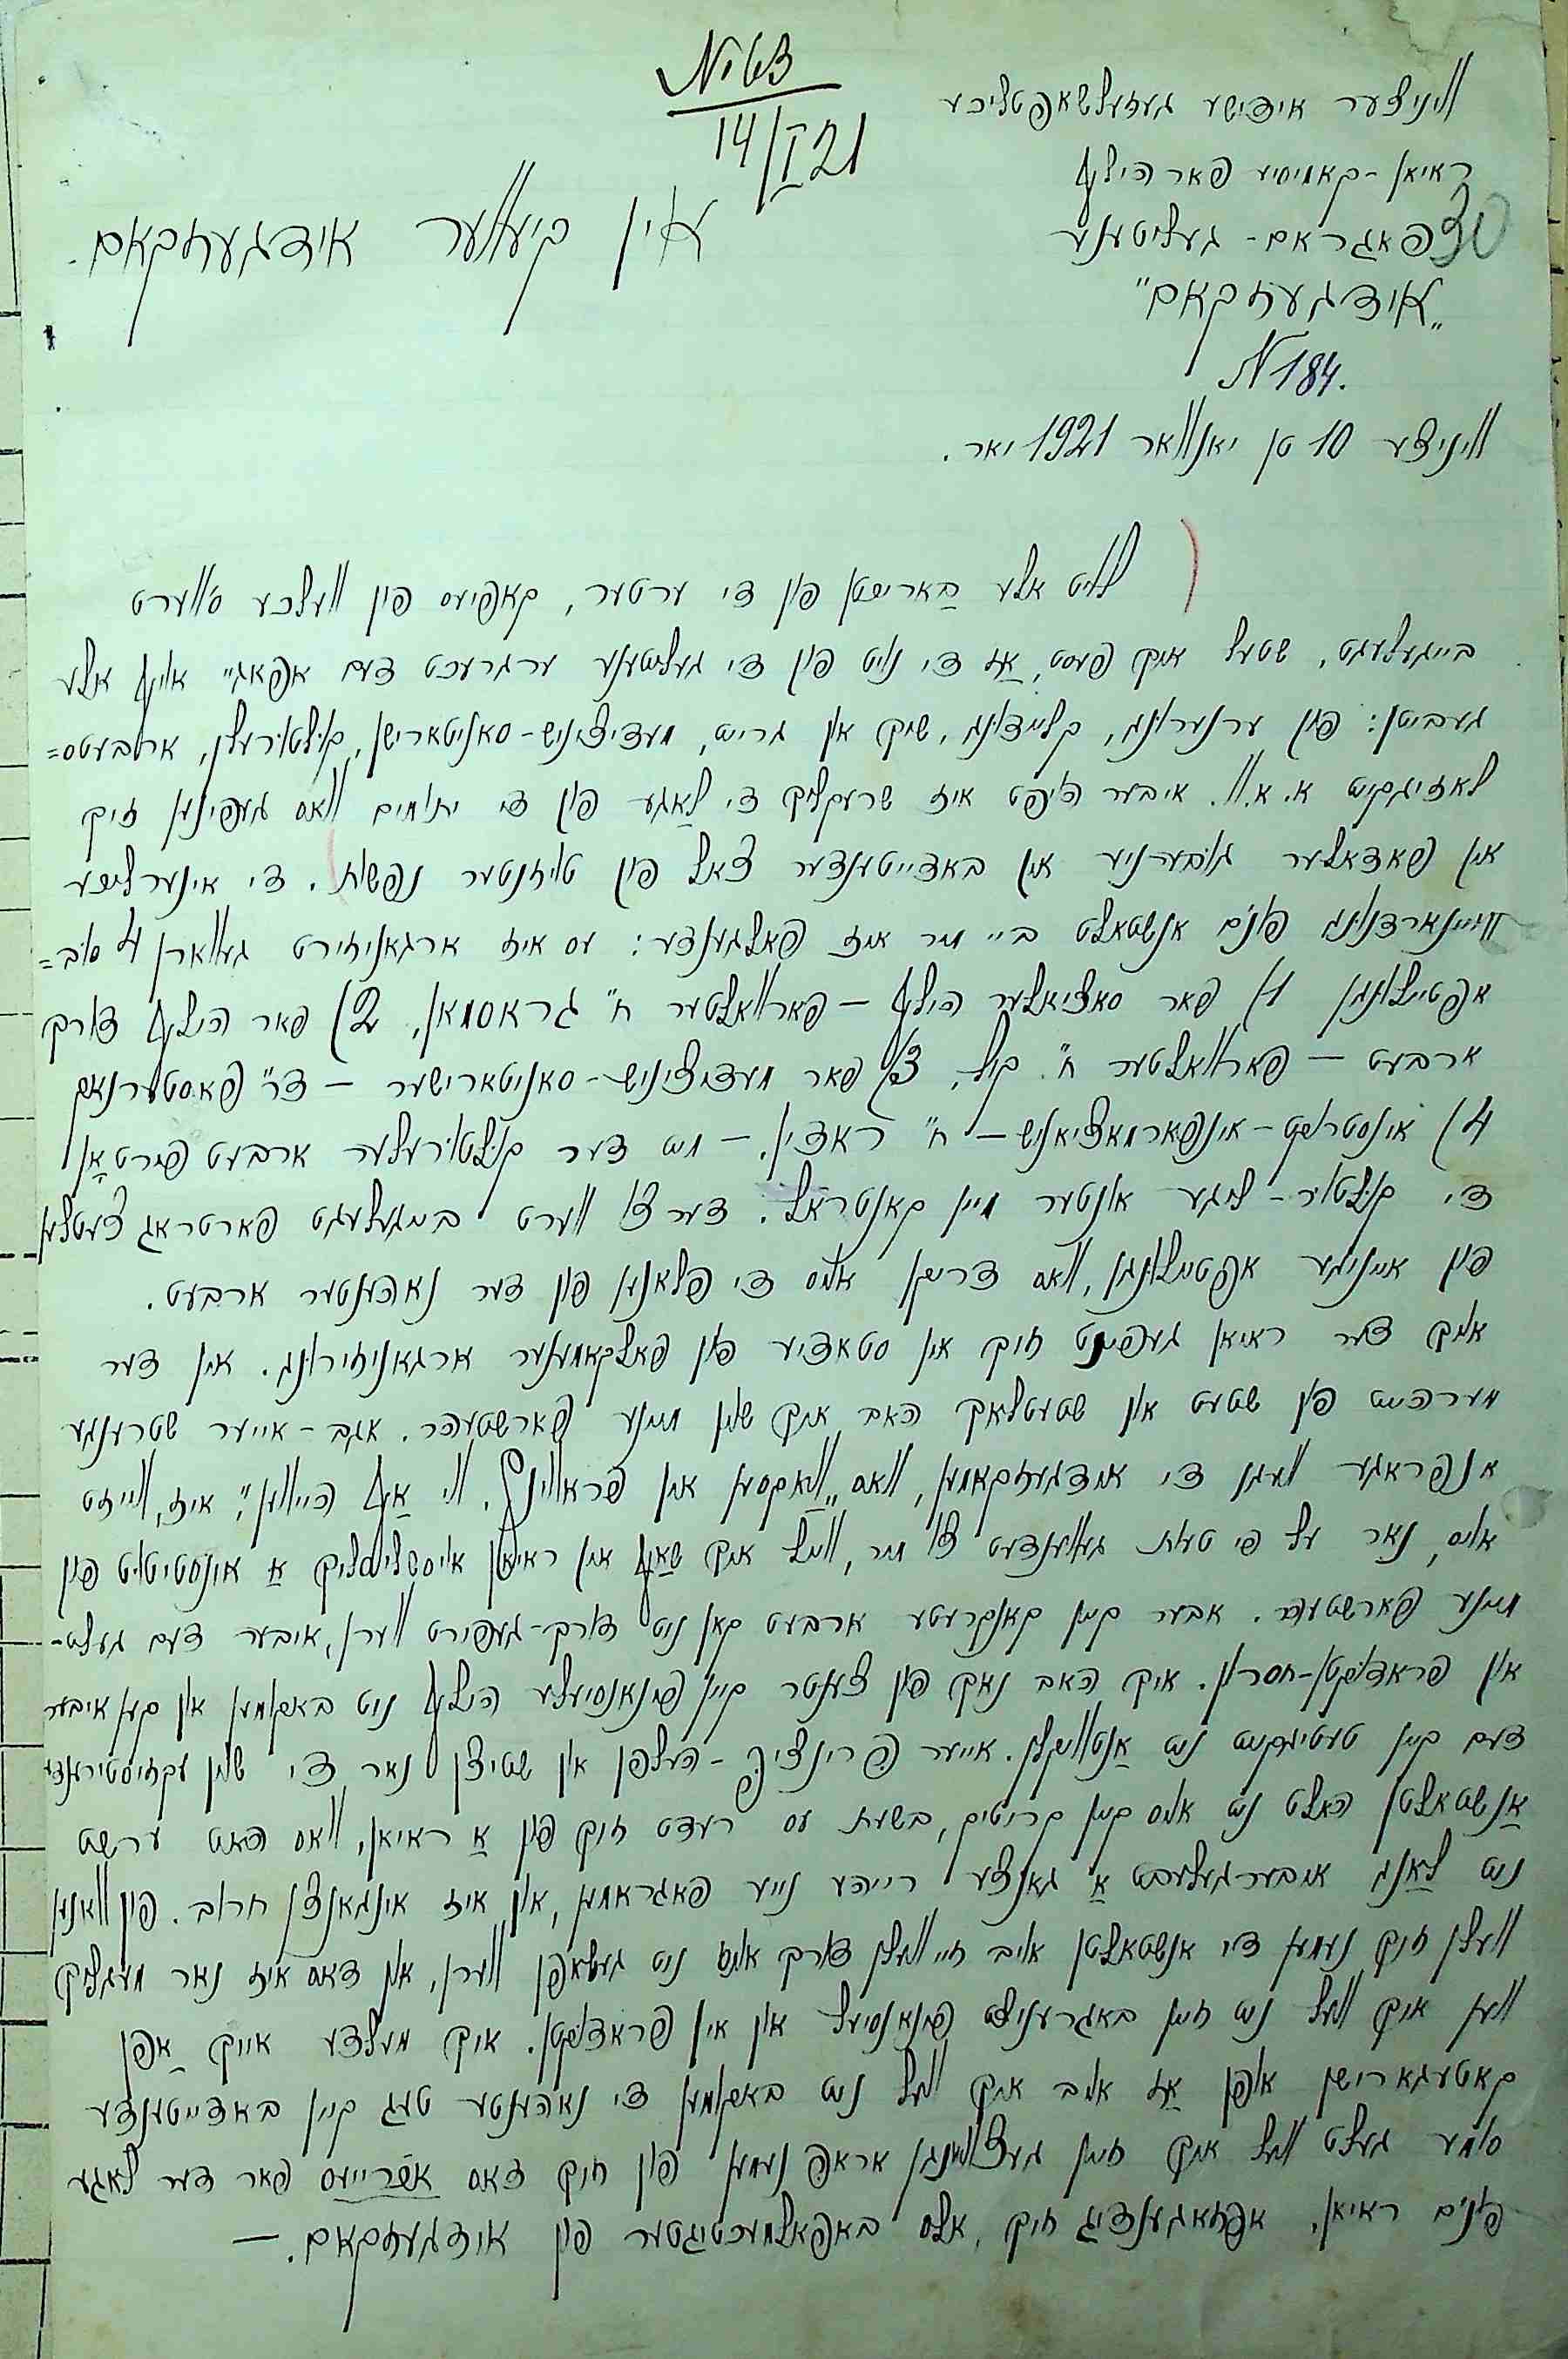 N 673
14/I 21
וויניצער אידישע געזעלשאפטליכע
ראיאן-קאמיסיע פאר הילף
פאגראם-געליטענע
30
„אידגעזקאם"
N 184.
אין קיעווער אידגעזקאם.
וויניצע 10 טן יאנוואר 1921 יאר.
לויט אלע באריכטן פון די ערטער, קאפיעס פון וועלכע ס'ווערט
בייגעלעגט, שטעל איך פעסט, אַז די נויט פון די געליטענע ערגרעכט דעם אפאגיי אויף אלע
געביטן: פון ערנערונג, קליידונג, שיך און גרייט, מעדיציניש-סאניטארישן, קולטורעלן, ארבעטס=
לאזיגקייט א. א. וו. איבער הויפט איז שרעקליך די לאַגע פון די יתומים וואס געפינען זיך
אין פאדאלער גובערניע אין באדייטענדער צאל פון טויזנטער נפשות. די אינערליכע
איינארדנונג פונ'ם אנשטאלט ביי מיר איז פאלגענדע: עס איז ארגאניזירט געווארן 4 סוב=
אפטיילונגן 1) פאר סאציאלער הילף – פארוואלטער ח" גראסמאן, 2) פאר הילף דורך
ארבעט – פארוואלטער ח" קיל, 3) פאר מעדיציניש-סאניטארישער – ד"ר פאסטערנאק
4) אינסטרוקט-אינפארמאציאניש – ח" ראדין. – מיט דער קולטורעלער ארבעט פירט אָן
די קולטור-ליגע אונטער מיין קאנטראל. דערצו ווערט בייגעלעגט פארטראג צעטלען
פון אייניגע אפטיילונגן, וואס דריקן אויס די פלאנען פון דער נאהענטער ארבעט.
אויך דער ראיאן געפינט זיך אין סטאדיע פון פאלקאמענער ארגאניזירונג. אין דער
מערהייט פון שטעט און שטעטלאך האב איך שוין מיינע פארשטעהר. אגב-אייער שטרענגע
אנפראגע וועגן די אידגעזקאמען, וואס „וואַקסען אין פראווינץ, ווי אַף הייוון", איז, ווייזט
אויס, נאר על פי טעות געווענדעט צו מיר, ווייל איך שאַף אין ראיאן אויסשליסליך אַ אינסטיטוט פון
מיינע פארשטעהר. אבער קיין קאנקרעטע ארבעט קאן ניט דורך-געפירט ווערן, איבער דעם געלט-
און פראדוקטן-חסרון. איך האב נאך פון צענטר קיין פינאנסיעלע הילף ניט באקומען און קען איבער
דעם קיין טעטיגקייט ניט אַנטוויקלן. אייער פּרינציפּ-העלפן און שטיצן נאר די שוין עקזיסטירענדע
אַנשטאלטן האלט ניט אויס קיין קריטיק, בשעת עס רעדט זיך פון אַ ראיאן, וואס האט ערשט
ניט לאַנג איבערגעלעבט אַ גאנצע רייהע נייע פאגראמען, און איז אינגאנצן חרוב. פון וואנען
וועלן זיך נעמען די אנשטאלטן אויב זיי וועלן דורך אונז ניט געשאפן ווערן, און דאס איז נאר מעגליך
ווען איך וועל ניט זיין באגרעניצט פינאנסיעל און אין פראדוקטן. איך מעלדע אייך אַפן
קאטעגארישן אופן אַז אויב איך וועל ניט באקומען די נאהענטע טעג קיין באדייטענדע
סומע געלט וועל איך זיין געצוואונגן אראפ נעמען פון זיך דאס אַחריות פאר דער לאגע
פונ'ם ראיאן, אפזאגענדיג זיך, אלס באפאלמעכטיגטער פון אידגעזקאם. –